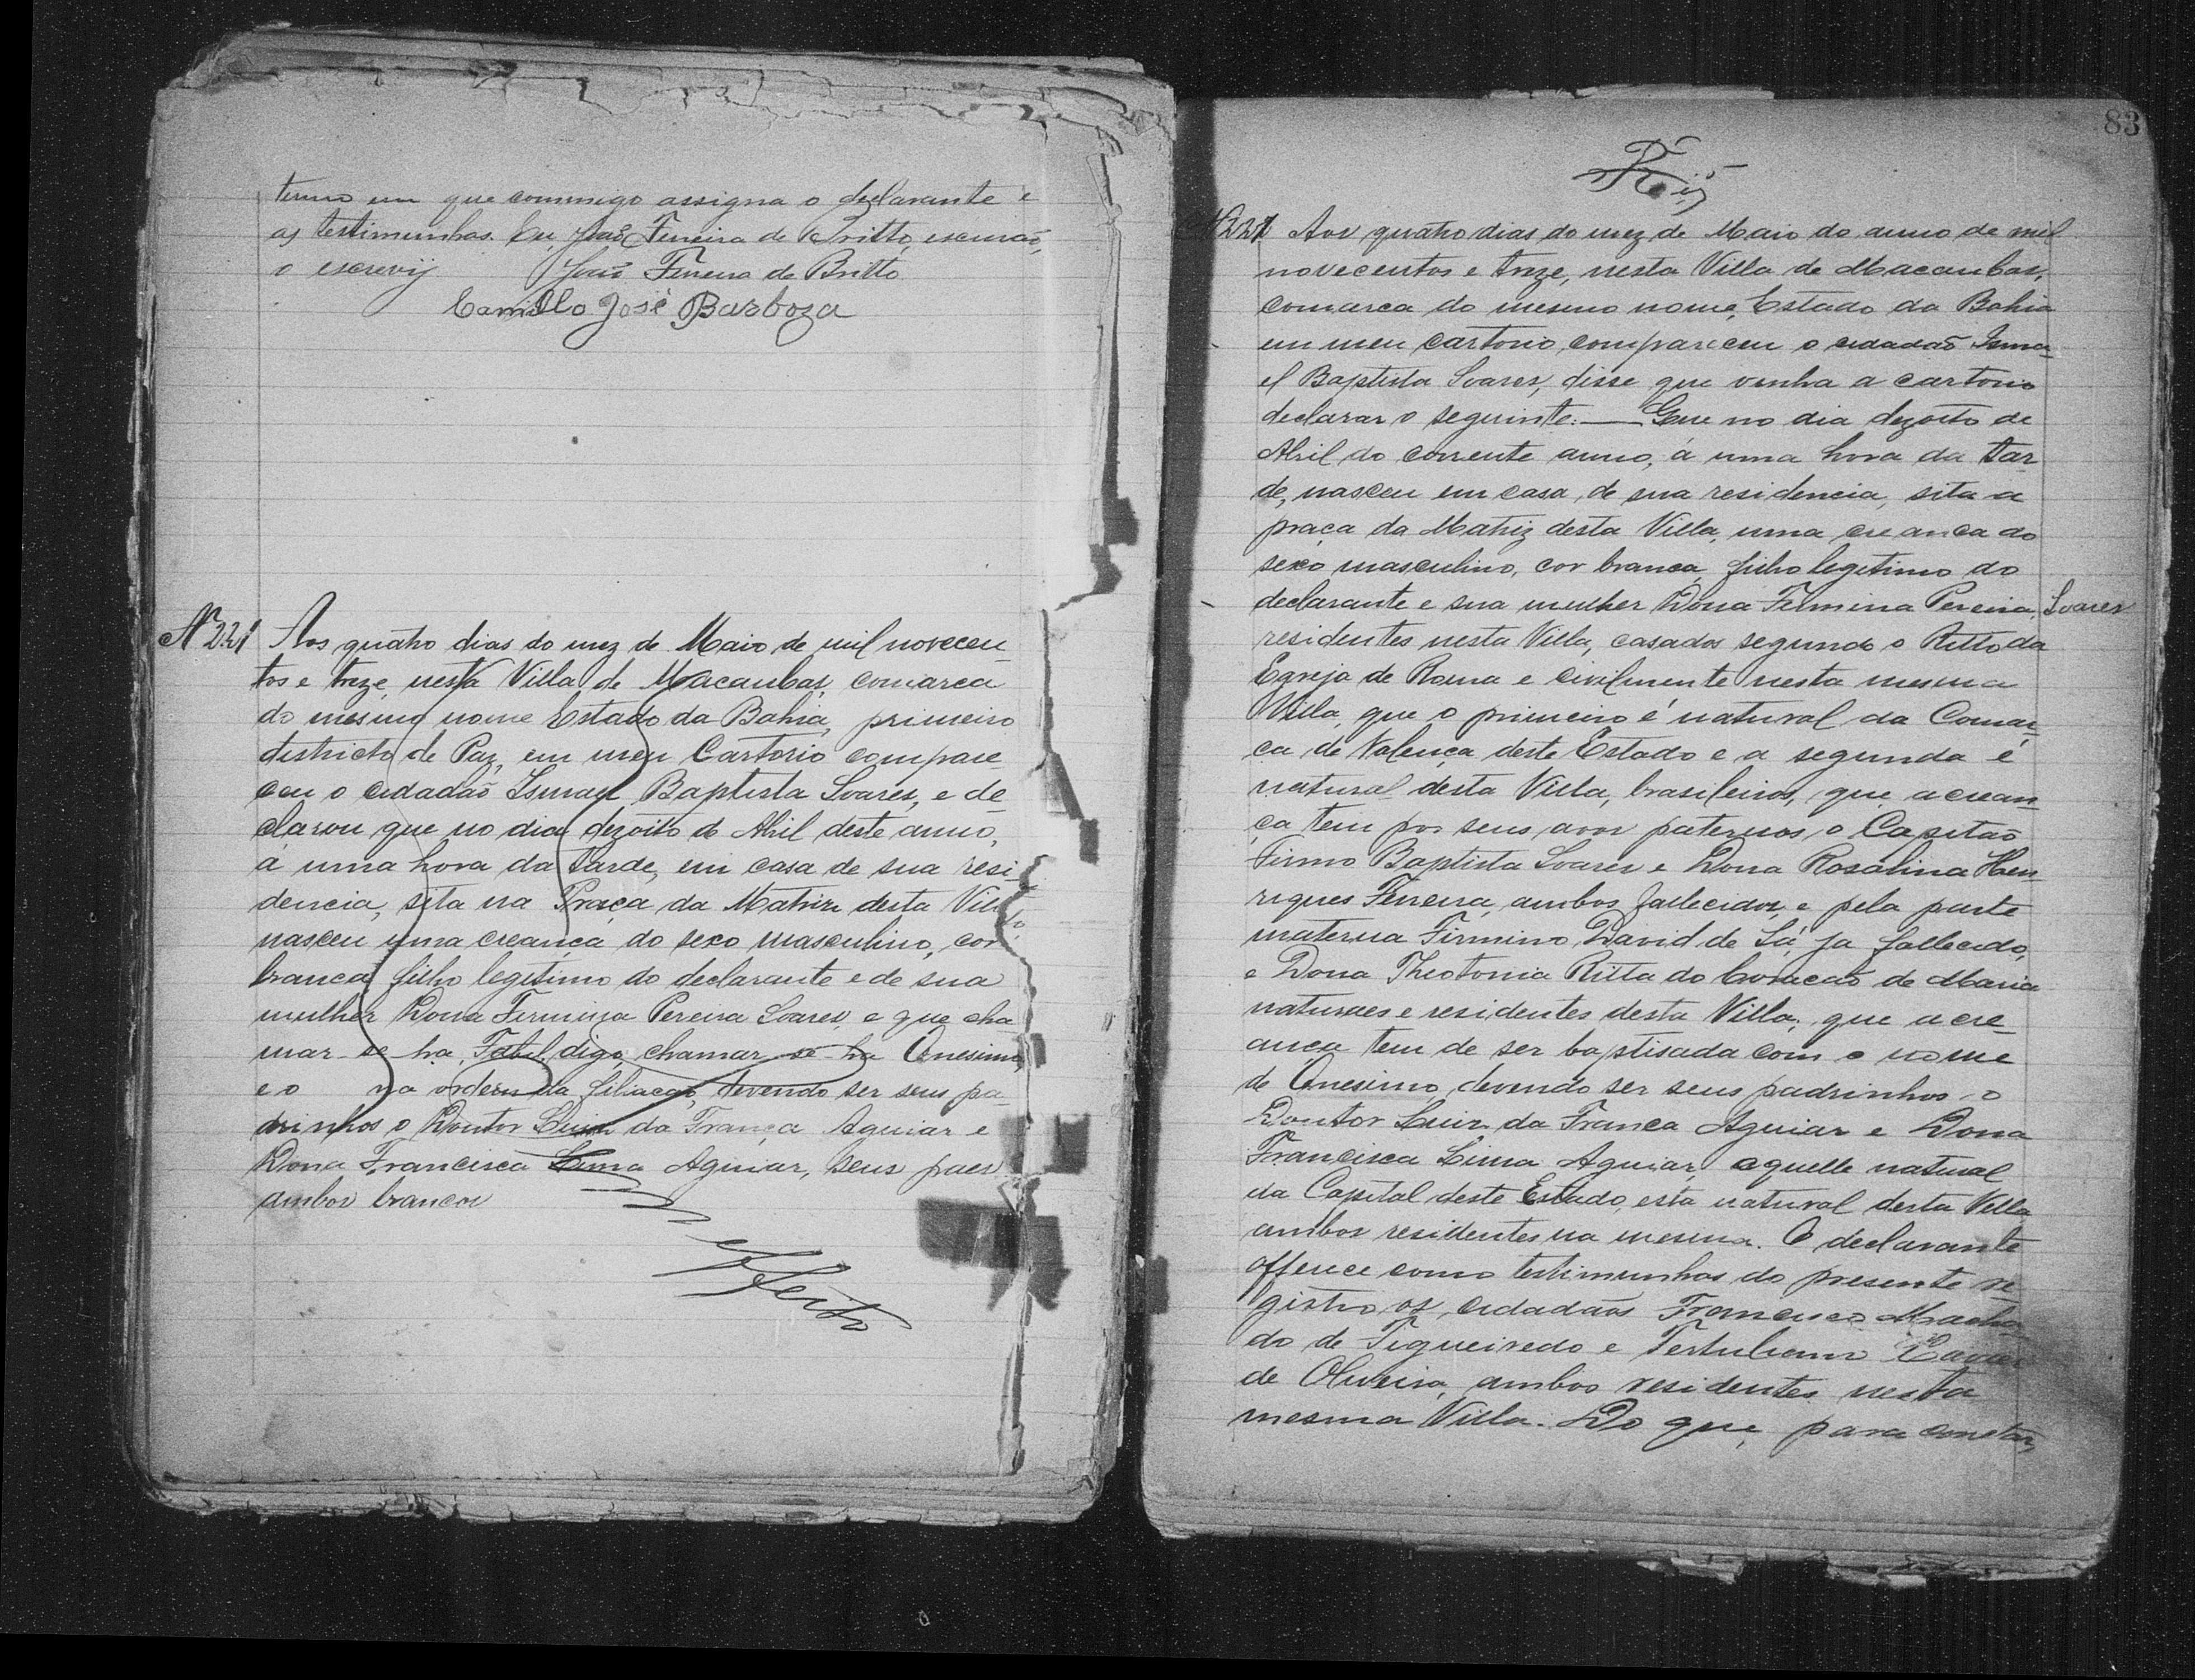 termo em que commigo assigna o declarante e
as testimunhas. Eu João Ferreira de Britto, escrivão,
o escrevij João Ferreira de Britto
Camillo José Barboza
Nº 221 Aos quatro dias do mez de Maio de mil novecen
tos e treze, nesta Villa de Macaubas, comarca
do mesmo nome Estado da Bahia, primeiro
districto de Paz, em meu Cartorio compare
ceu o cidadão Ismael Baptista Soares, e de
clarou que no dia dezoito de Abril deste anno,
á uma hora da tarde, em casa de sua resi
dencia, sita na Praça da Matriz desta Villa
nasceu uma creança do sexo masculino, cor
branca, filho legitimo do declarante e de sua
mulher Dona Fermina Pereira Soares, e que cha
mar-se-ha, digo, chamar-se-ha Onesimo,
e o na ordem da filiação, devendo ser seus pa
drinhos o Doutor Luiz da França Aguiar e
Dona Francisca Lima Aguiar, seus paes
ambos brancos
83
Nº 221 Aos quatro dias do mez de Maio do anno de mil
novecentos e treze, nesta Villa de Macaubas,
comarca do mesmo nome, Estado da Bahia
em meu cartorio, compareceu o cidadão Isma
el Baptista Soares, disse que vinha a cartorio
declarar o seguinte: — Que no dia dezoito de
Abril do corrente anno, á uma hora da tar
de, nasceu em casa, de sua residencia, sita a
praça da Matriz desta Villa, uma creança do
sexo masculino, cor branca, filho legitimo do
declarante e sua mulher Dona Fermina Pereira, Soares
residentes nesta Villa, casados segundo o Ritto da
Egreja de Roma e civilmente nesta mesma
Villa, que o primeiro é natural da Comar
ca de Valença deste Estado e a segunda é
natural desta Villa, brasileiros, que a crean
ça tem por seus avos paternos, o Capitão
Firmo Baptista Soares e Dona Rosalina Hen
riques Ferreira, ambos fallecidos, e pela parte
materna Firmino David de Sá, ja fallecido,
e Dona Theotonia Ritta do Coração de Maria
naturaes e residentes desta Villa; que a cre
ança tem de ser baptisada com o nome
de Onesimo, devendo ser seus padrinhos o
Doutor Luiz da França Aguiar e Dona
Francisca Lima Aguiar, aquelle natural
da Capital deste Estado, esta natural desta Villa
ambos residentes na mesma. O declarante
offerece como testimunhas do presente re
gistro os cidadãos Francisco Macha
do de Figueiredo e Tertuliano Xavier
de Oliveira, ambos residentes nesta
mesma Villa. Do que, para constar,